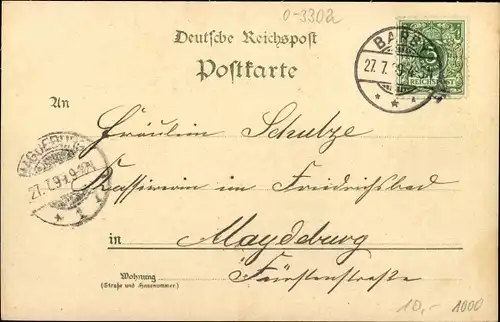 0-3302
Deutsche Reichspost
Postkarte
BARBY
27. 7. 9
5
REICHSPOST
An
Fräulein Schulze
MAGDEBURG
27. 7. 9
* 1
Kassirerin im Friedrichsbad
in Magdeburg
Wohnung Fürstenstraße
(Straße und Hausnummer)
10,- 1000